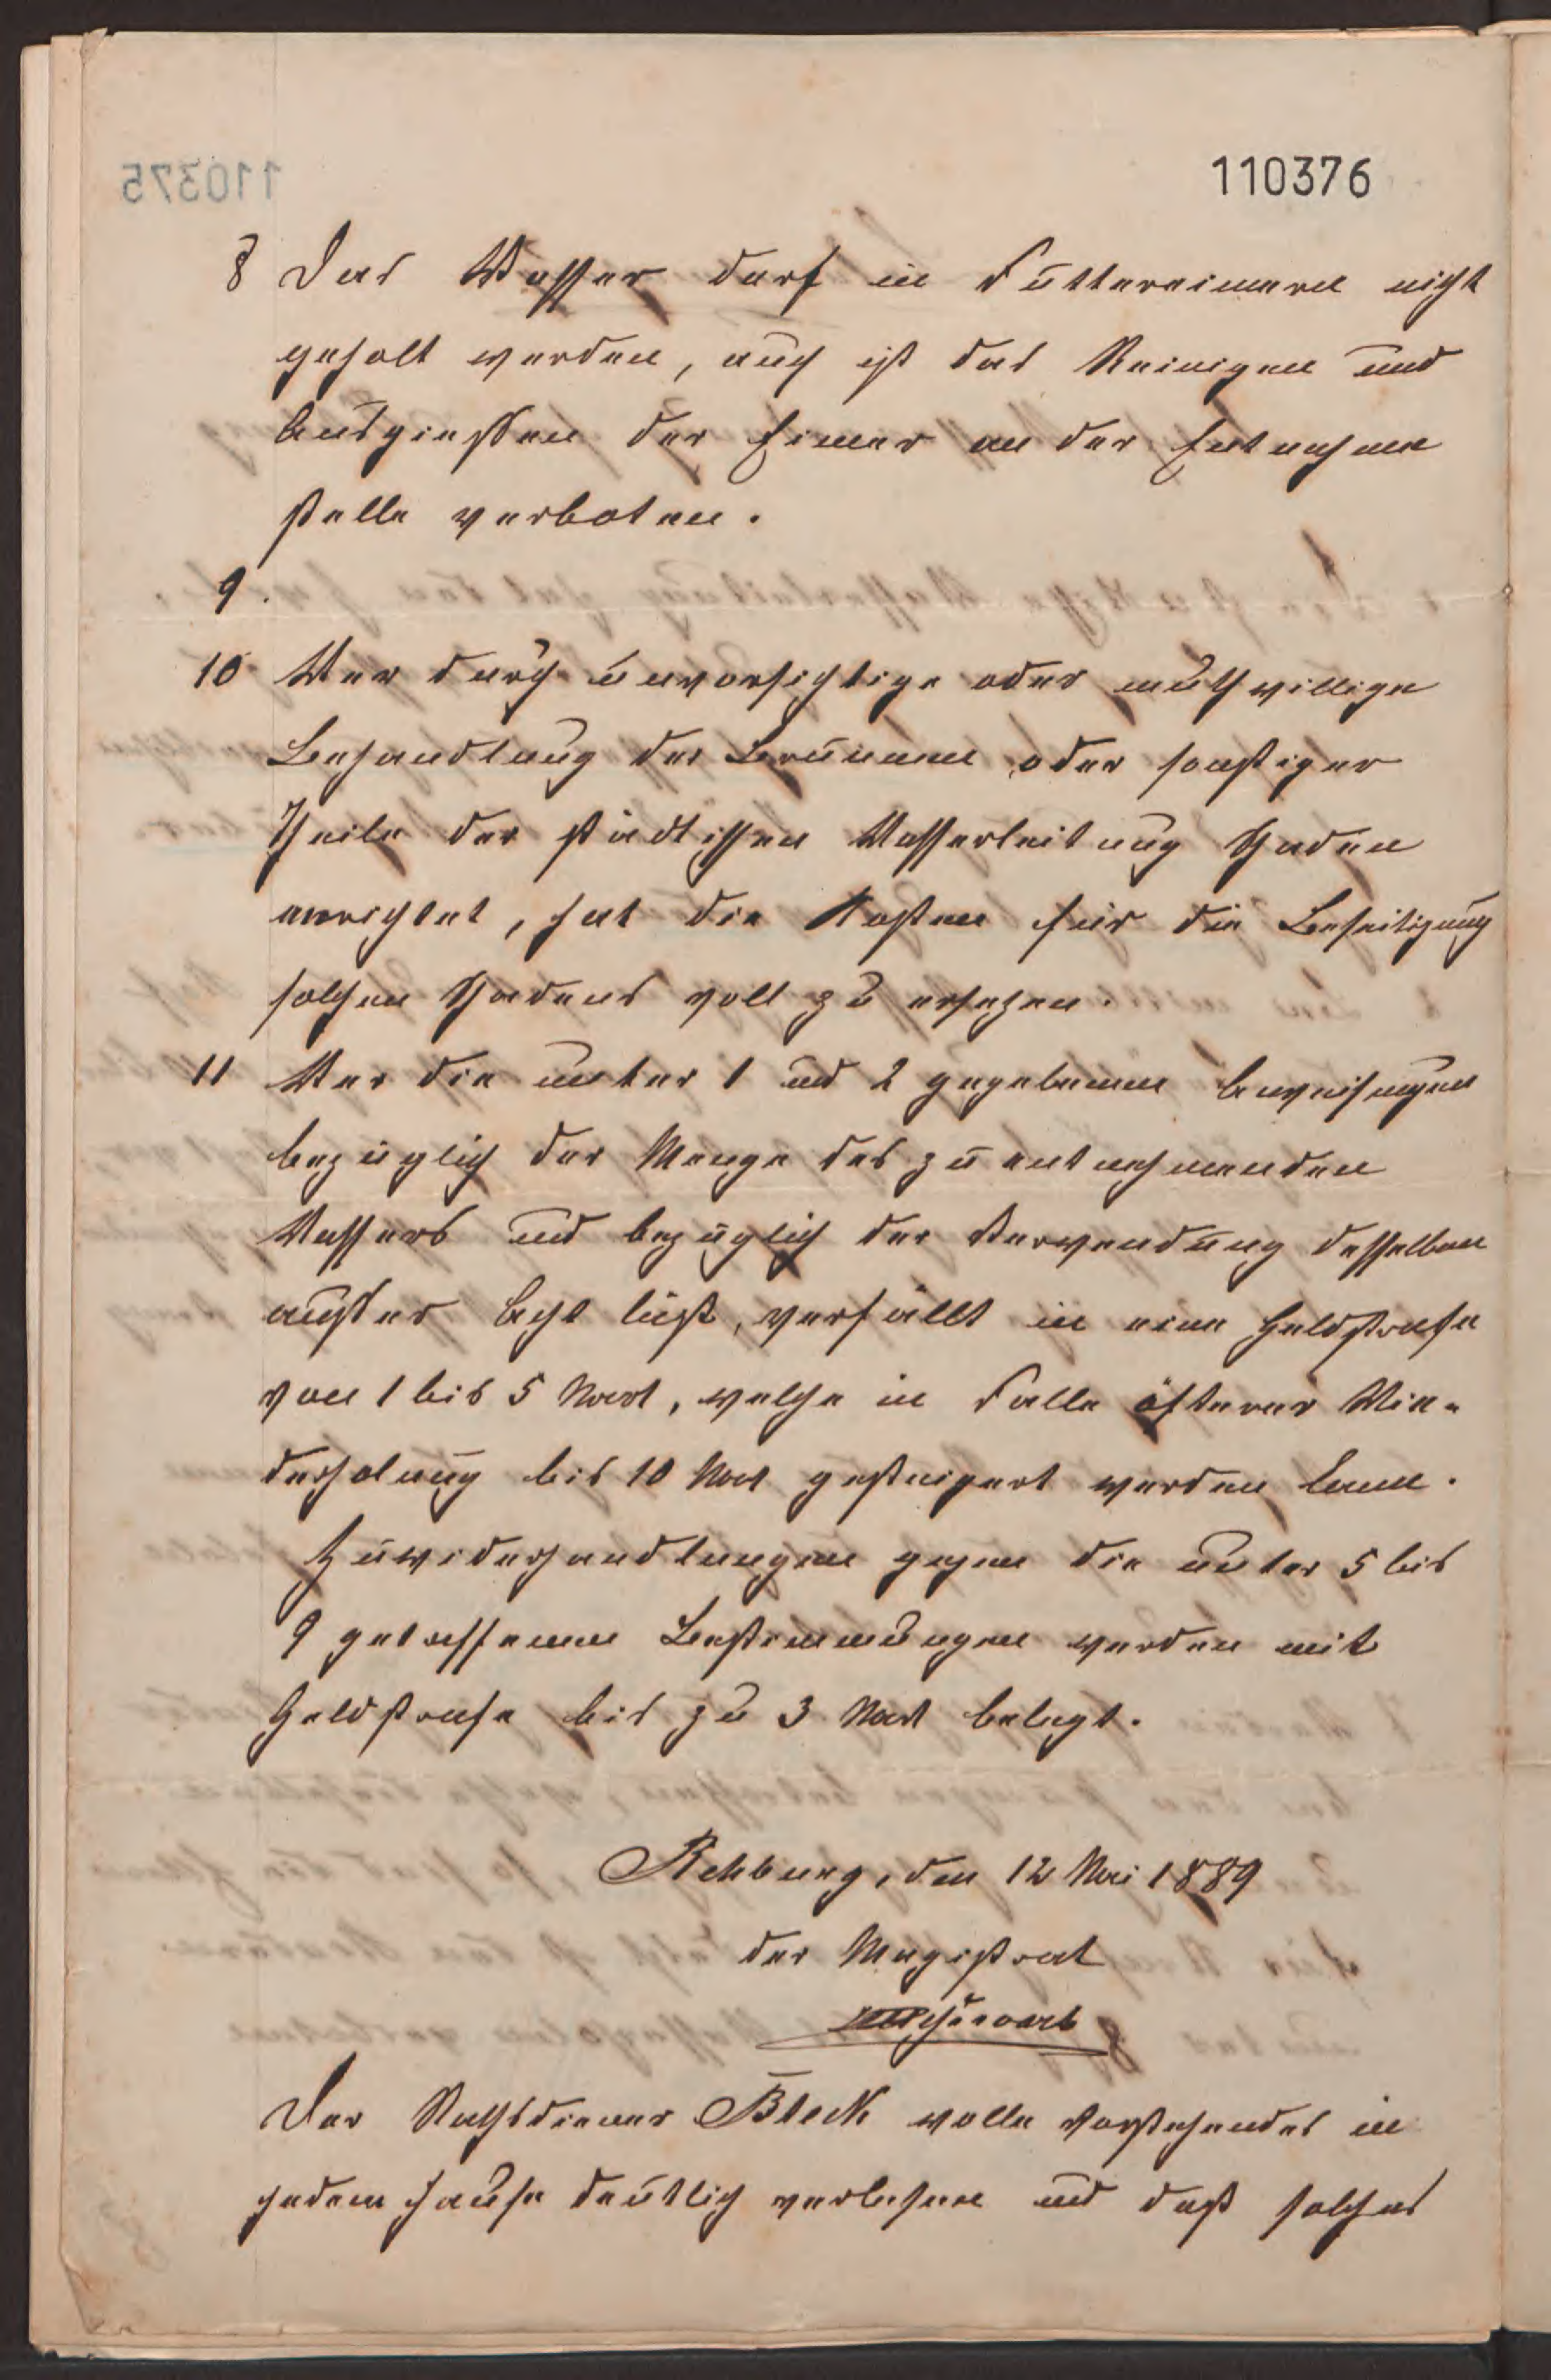 110376
8 Das Wasser darf in Futtereimern nicht
geholt werden, auch ist das Reinigen und
Ausgießen der Eimer an der Entnahme
stelle verboten.
9.
10 Wer durch unvorsichtige oder muthwillige
Behandlung der Brunnen oder sonstiger
Theile der städtischen Wasserleitung Schaden
anrichtet, hat die Kosten für die Beseitigung
solchen Schadens voll zu ersetzen.
11 Wer die unter 1 und 2 gegebenen Anweisungen
bezüglich der Menge des zu entnehmenden
Wassers und bezüglich der Verwendung desselben
außer Acht läßt, verfällt in eine Geldstrafe
von 1 bis 5 Mark, welche in Falle öfterer Wie-
derholung bis 10 Mark gesteigert werden kann.
Zuwiderhandlungen gegen die unter 5 bis
9 getroffenen Bestimmungen werden mit
Geldstrafe bis zu 3 Mark belegt.
Rehburg, den 12 Mai 1889
der Magistrat
Der Rathsdiener Bleck wolle Vorstehendes in
jedem Hause deutlich verlesen und daß solches